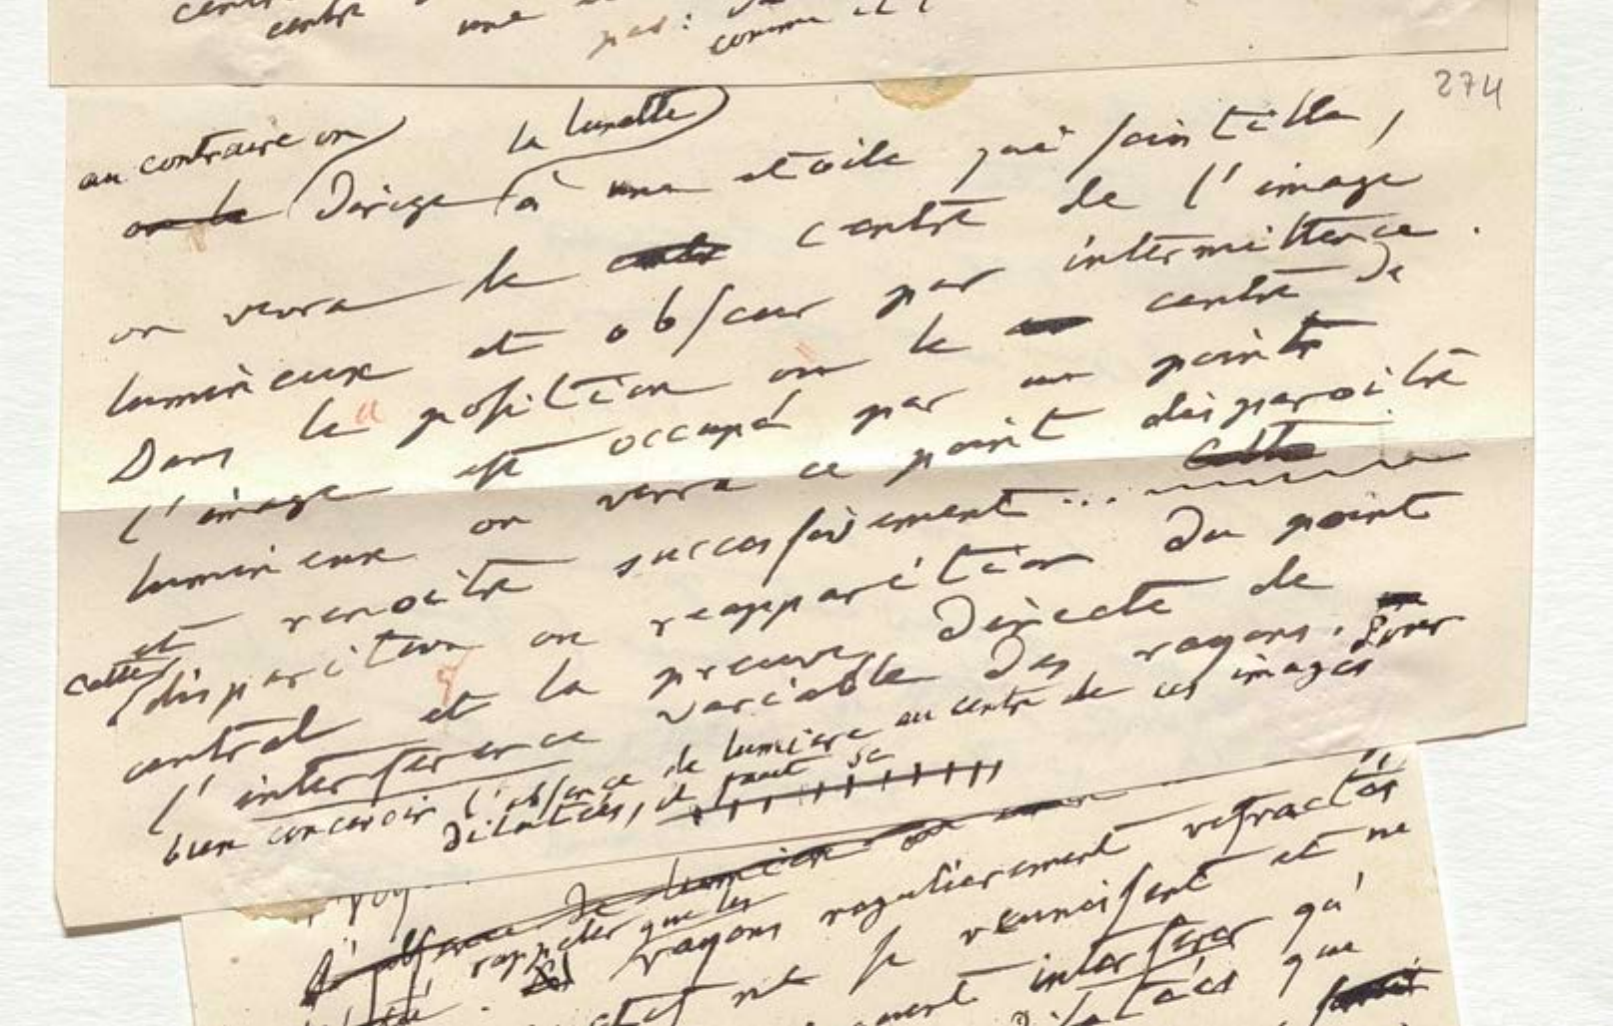 centre une
pas: comme
274
au contraire on la lunette
on la Dirige à une etoile qui scintille,
on verra le centre de l'image
lumineux et obscur par intermittence.
Dans la position ou le centre de
l'image est occupé par un point
lumineux on verra ce point disparoitre
et renoitre successivement ... cette
cette disparition ou reapparition du point
central est la preuve Directe de
l'interference variable Des rayons. Pour
bien concevoir l'absence de lumiere au centre de ces images
Dilatées, il faut se
l'absence De lumiere
rappeler que les
rayons regulierement refractés
se reunissent et ne
interferer qu'
que